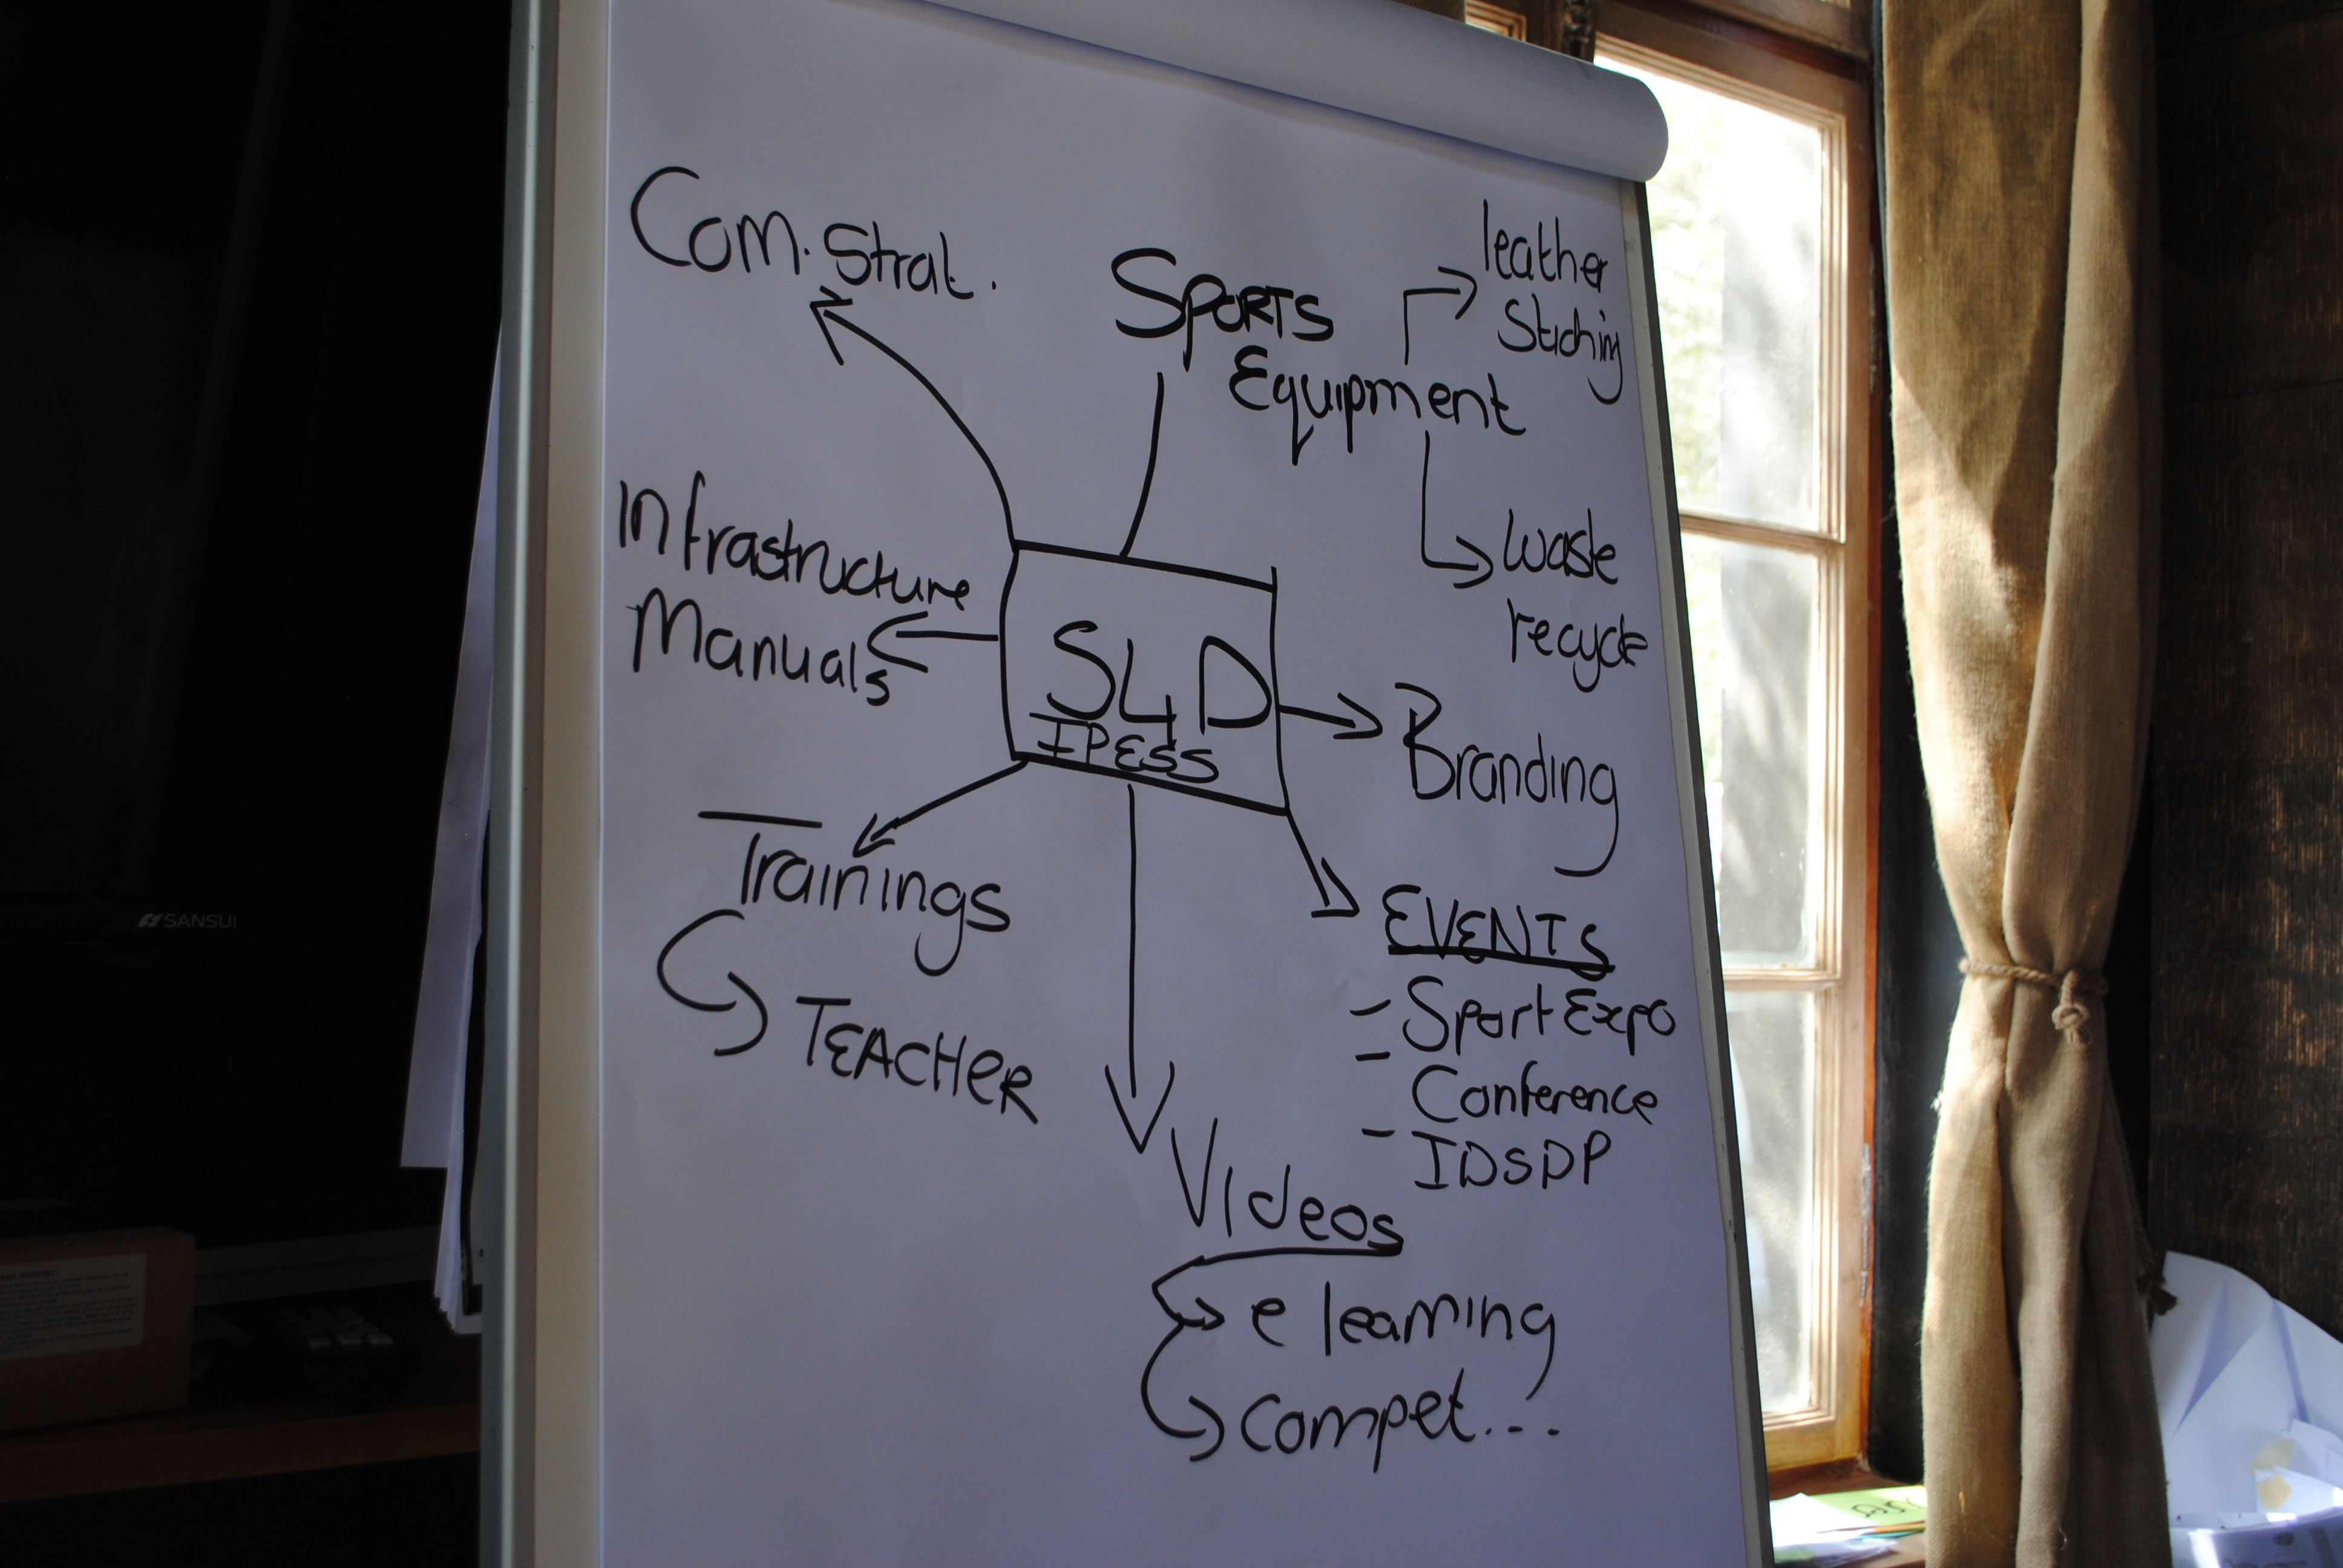 Com. Strat.
Sports
Equipment
leather
Stiching
waste
recycle
Infrastructure
Manuals
S4D
IPESS
Branding
Trainings
TEACHER
EVENTS
- Sport Expo
- Conference
- IDSDP
Videos
e learning
compet...
SANSUI